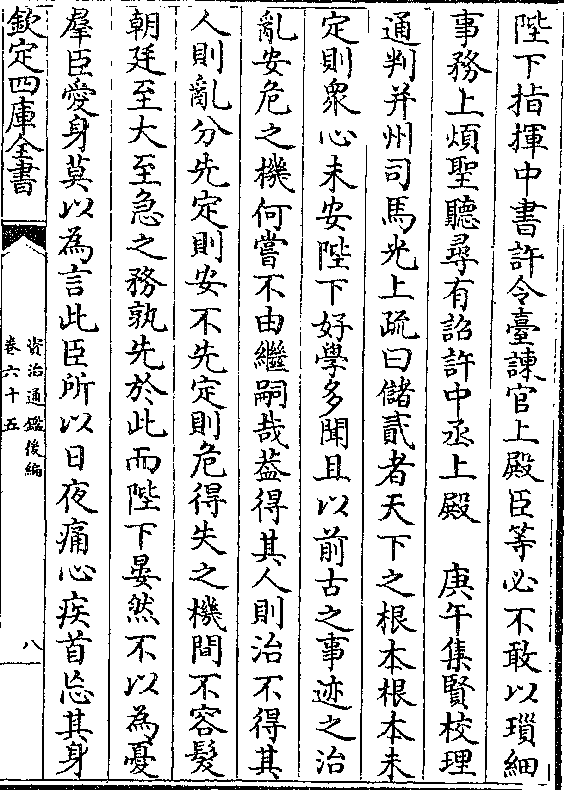 陛下指揮中書許令臺諫官上殿臣等必不敢以瑣細
事務上煩聖聽尋有詔許中丞上殿　庚午集賢校理
通判并州司馬光上疏曰儲貳者天下之根本根本未
定則衆心未安陛下好學多聞且以前古之事迹之治
亂安危之機何嘗不由繼嗣哉葢得其人則治不得其
人則亂分先定則安不先定則危得失之機間不容髮
朝廷至大至急之務孰先於此而陛下晏然不以為憂
羣臣愛身莫以為言此臣所以日夜痛心疾首忘其身
欽定四庫全書
資治通鑑後編
卷六十五
八